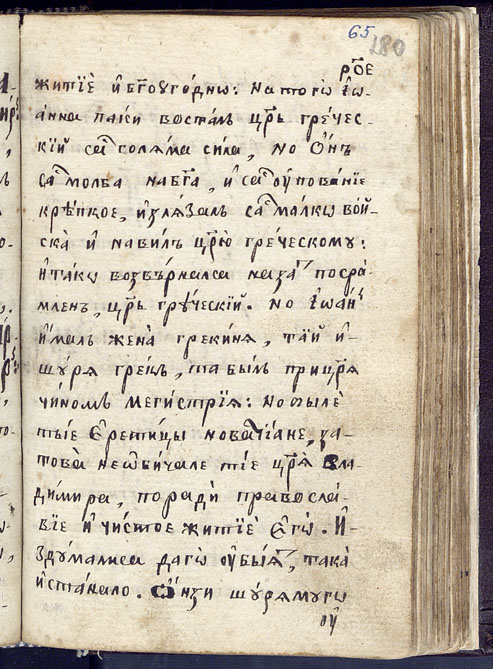 65
180
рⷭ҇ое
житїѐ и҆ бг҃ѹгоднѡ: на тогѡ І҆ѡ-
анна паки восталъ цр҃ь гре́чес-
кїй саⷭ голяма сила, но О҆нъ
саⷭ молба на бг҃а, и҆ саⷭ ѹ҆пованїе
крѣпкое, и҆злязалъ саⷭ малкѡ во́й-
ска̀ и҆ навилъ цр҃ю гре́ческомꙋ:
и҆ такѡ возвърналса назаⷣ посра̀-
мленъ, цр҃ь грꙋ́ческїй. но І҆ѡанⸯ
и҆малъ жена̀ грекиня, та́й и҆-
шꙋря грекъ, та былъ при цр҃я
чи́номъ магистрїя: но были
тїе Е҆ретицы новатїане, за-
това̀ не ѡ҆бичале тїе цр҃я Вла-
димира, порадѝ правосла́-
вїе и҆ чи́стое житїѐ Е҆гѡ. И҆-
здꙋмалиса да гѡ ѹ҆бїяⷮ, така̀
и҆ ста́нало. Ѻ҆нзи шꙋря мꙋ гѡ
ѹ҆